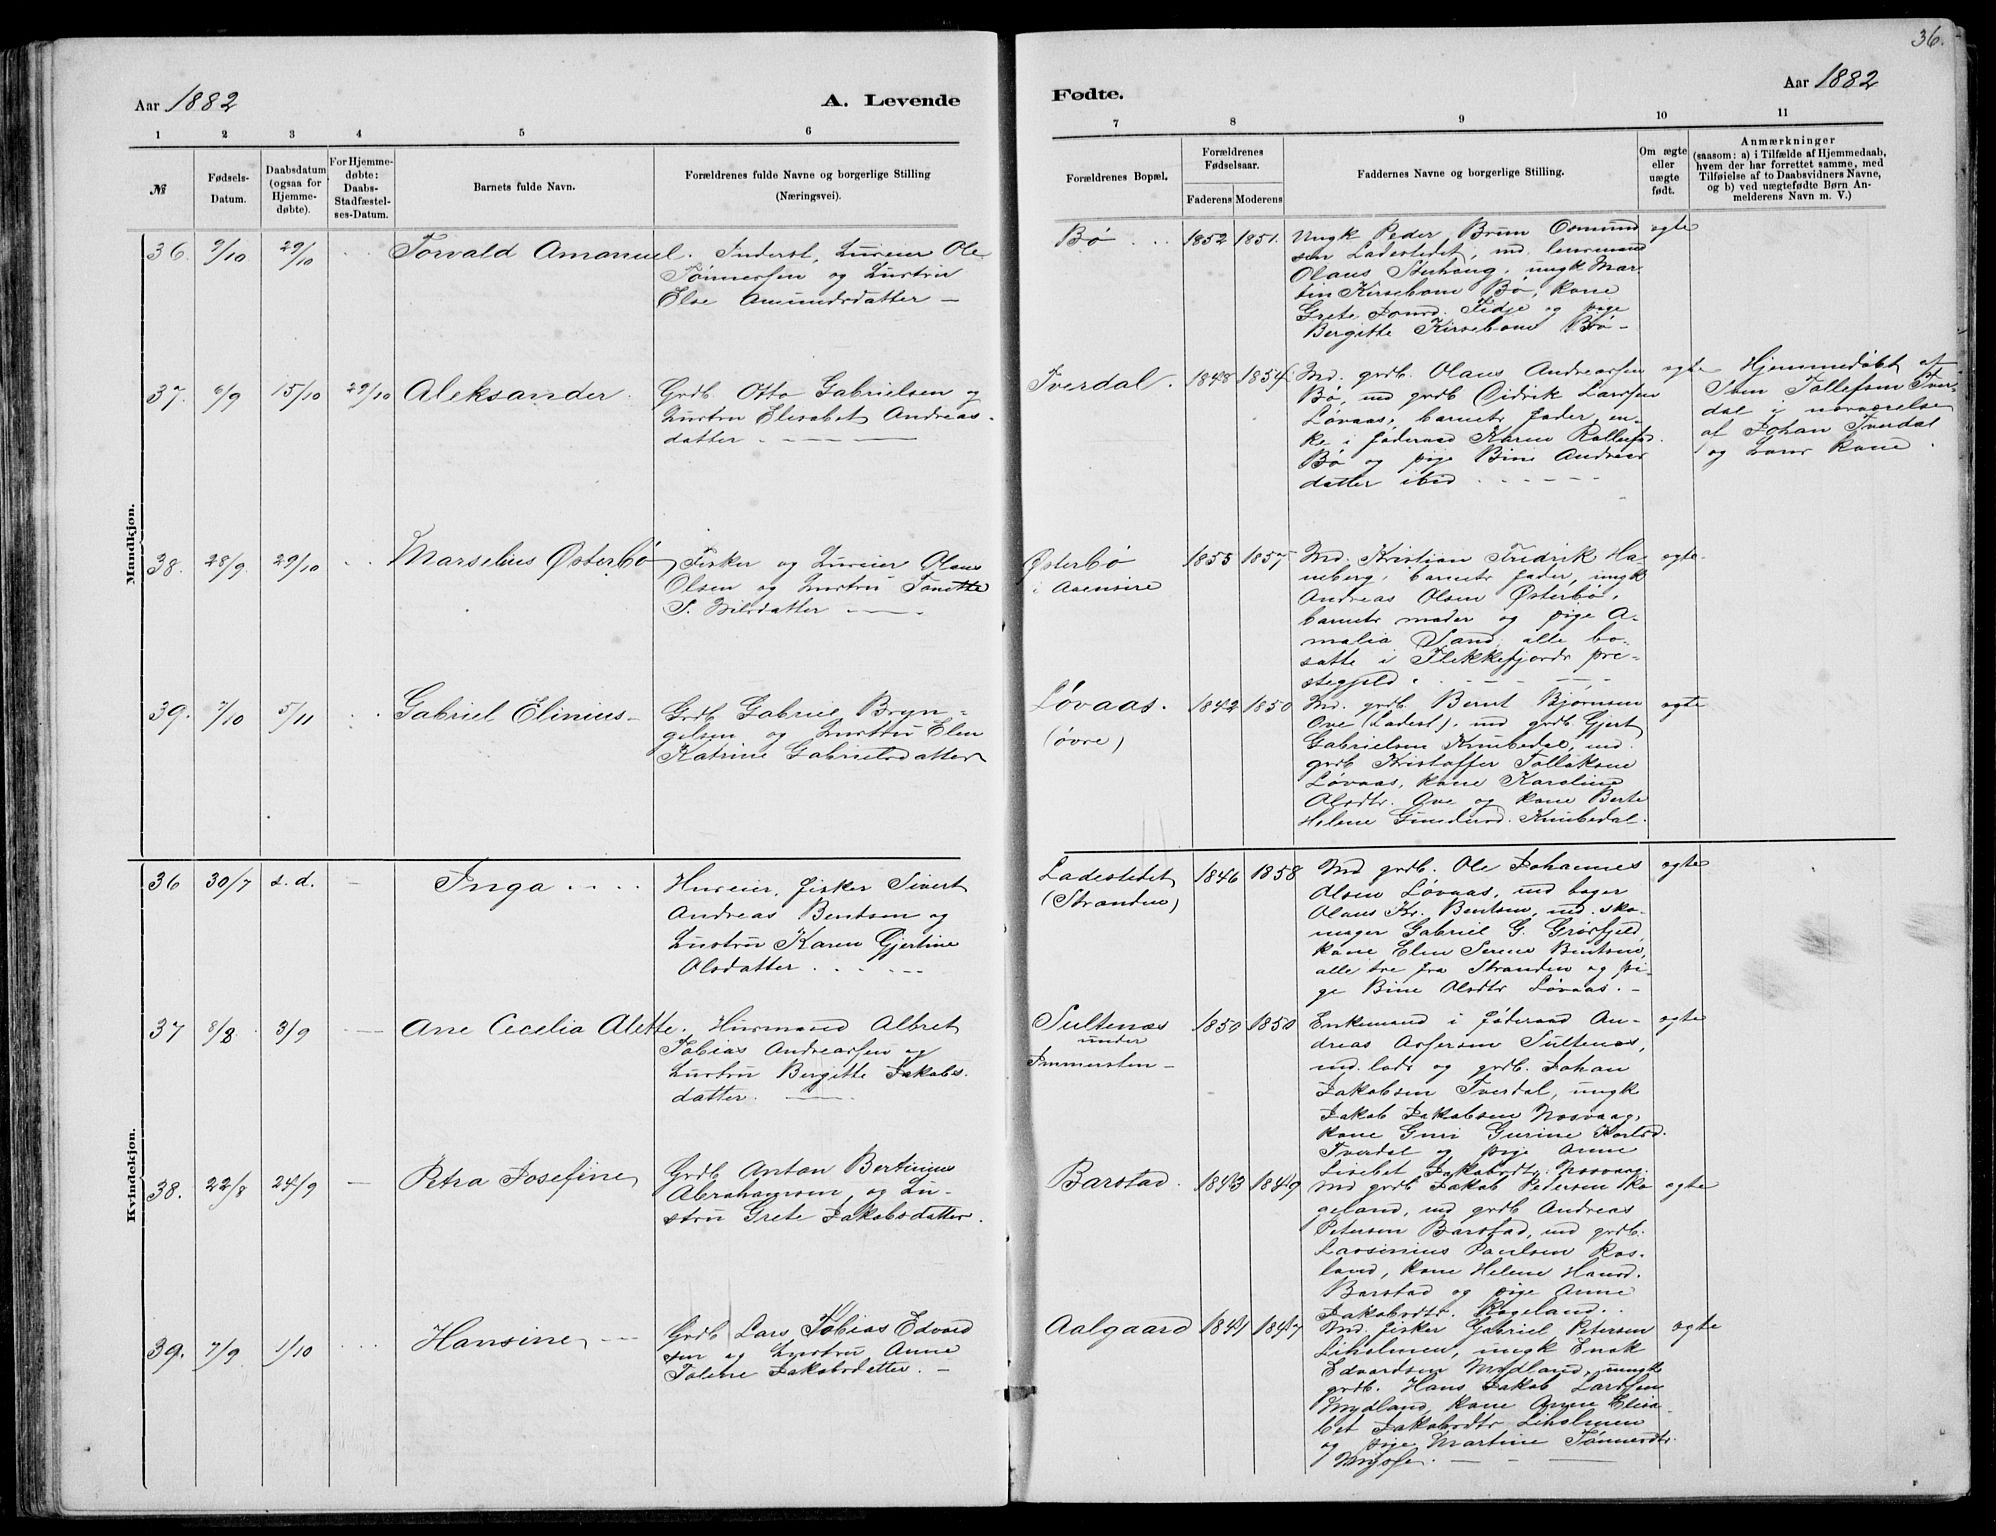 36.
Aar 1882
A. Levende
Fødte.
Aar 1882
1 2 3 4 5 6
7 8 9 10 11
№
Fødsels-
Datum.
Daabsdatum
(ogsaa for
Hjemme-
døbte).
For Hjemme-
døbte:
Daabs-
Stadfæstel-
ses-Datum.
Barnets fulde Navn.
Forældrenes fulde Navne og borgerlige Stilling
(Næringsvei).
Forældrenes Bopæl.
Forældrenes
Fødselsaar.
Faderens Moderens
Faddernes Navne og borgerlige Stilling.
Om ægte
eller
uægte
født.
Anmærkninger
(saasom: a) i Tilfælde af Hjemmedaab,
hvem der har forrettet samme, med
Tilføielse af to Daabsvidners Navne,
og b) ved uægtefødte Børn An-
melderens Navn m. V.)
Mandkjøn.
36. 9/10 29/10 Torvald Amanuel.
Inderst, Huseier Ole
Tønnessen og Hustru
Else Amundsdatter –
Bø 1852 1851.
Ungk Peder Brun Osmund
sen Ladestedet, md. lensmand
Olaus Stenhaug, ungk Mar
tin Kirsebom Bø, kone
Grete Jonsd. Fidje og pige
Bergitte Kirsebom Bø –
egte
37. 6/9 15/10 29/10 Aleksander.
Grdb. Otto Gabrielsen og
Hustru Elisabet Andreas-
datter.
Tverdal. 1848 1854
Md. grdb. Olaus Andreassen
Bø, md grdb Didrik Larssen
Løvaas, barnets fader, en-
ke i føderaad Karen Rollefsd.
Bø og pige Bine Andreas
datter ibid
egte
Hjemmedøbt af
Tom Tollefsen Tver-
dal i nærværelse
af Johan Tverdal
og hans kone.
38. 28/9. 29/10 Marselius Østerbø
Fisker og Huseier Olaus
Olsen og Hustru Tonette
S. Nilsdatter
Østerbø
i Aaensire
1855 1857
Md. Kristian Fredrik Ha-
neberg, barnets fader, ungk
Andreas Olsen Østerbø,
barnets moder og pige A-
malia Sand, alle bo-
satte i Flekkefjords pre-
stegjeld.
egte.
39. 7/10 5/11 Gabriel Elinius –
Grdb Gabriel Bryn-
gelsen og Hustru Elen
Katrine Gabrielsdatter
Løvaas.
(øvre)
1842 1850
Md. grdb Bernt Bjørnsen
Ove (Ladest), md grdb Gjert
Gabrielsen Knibedal, md.
grdb Kristoffer Tollaksen
Løvaas, kone Karoline
Olsdtr. Ove og kone Berte
Helene Gundersd. Knibedal.
egte
Kvindekjøn.
36 30/7 s. d. – Inga
Huseier, fisker Sivert
Andreas Bentsen og
Hustru Karen Gjertine
Olsdatter
Ladestedet
(Stranden)
1846 1858
Md grdb. Ole Johannes
Olsen Løvaas, md bager
Olaus Kr. Bentsen, md. sko-
mager Gabriel G. Grøsfjeld,
kone Elen Serine Bentsen,
alle tre fra Stranden og pi-
ge Bine Olsdtr Løvaas. –
egte
37 8/8. 3/9 – Ane Cecelia Alette.
Husmand Albret
Tobias Andreassen og
Hustru Bergitte Jakobs.
datter.
Sultenæs
under
Immersten –
1850 1850
Enkemand i føderaad An-
dreas Assersen Sultenæs,
md. lods og grdb. Johan
Jakobsen Tverdal, ungk
Jakob Jakobsen Nosvaag,
kone Guri Gurine Karlsd.
Tverdal og pige Anne
Lisebet Jakobsdtr. Nosvaag.
egte
38. 22/8 24/9 – Petra Josefine
Grdb Anton Bertinius
Abrahamsen, og Hu-
stru Grete Jakobsdatter.
Barstad. 1843 1849
Md grdb Jakob Pedersen Ro
geland, md grdb Andreas
Petersen Barstad, md grdb.
Larsinius Paulsen Ros-
land, kone Helene Hansd.
Barstad og pige Anne
Jakobsdtr. Rogeland.
egte
39. 7/9 1/10 Hansine
Grdb Lars Tobias Edvard
sen og Hustru Anne
Tolene Jakobsdatter. –
Aalgaard 1841 1847
Md. fisker Gabriel Petersen
Liholmen, ungk Enok
Edvardsen Mydland, ungk
grdb. Hans Jakob Larssen
Mydland, kone Anne Elisa
bet Jakobsdtr Liholmen
og pige Martine Tønnesdtr.
Mysse.
egte